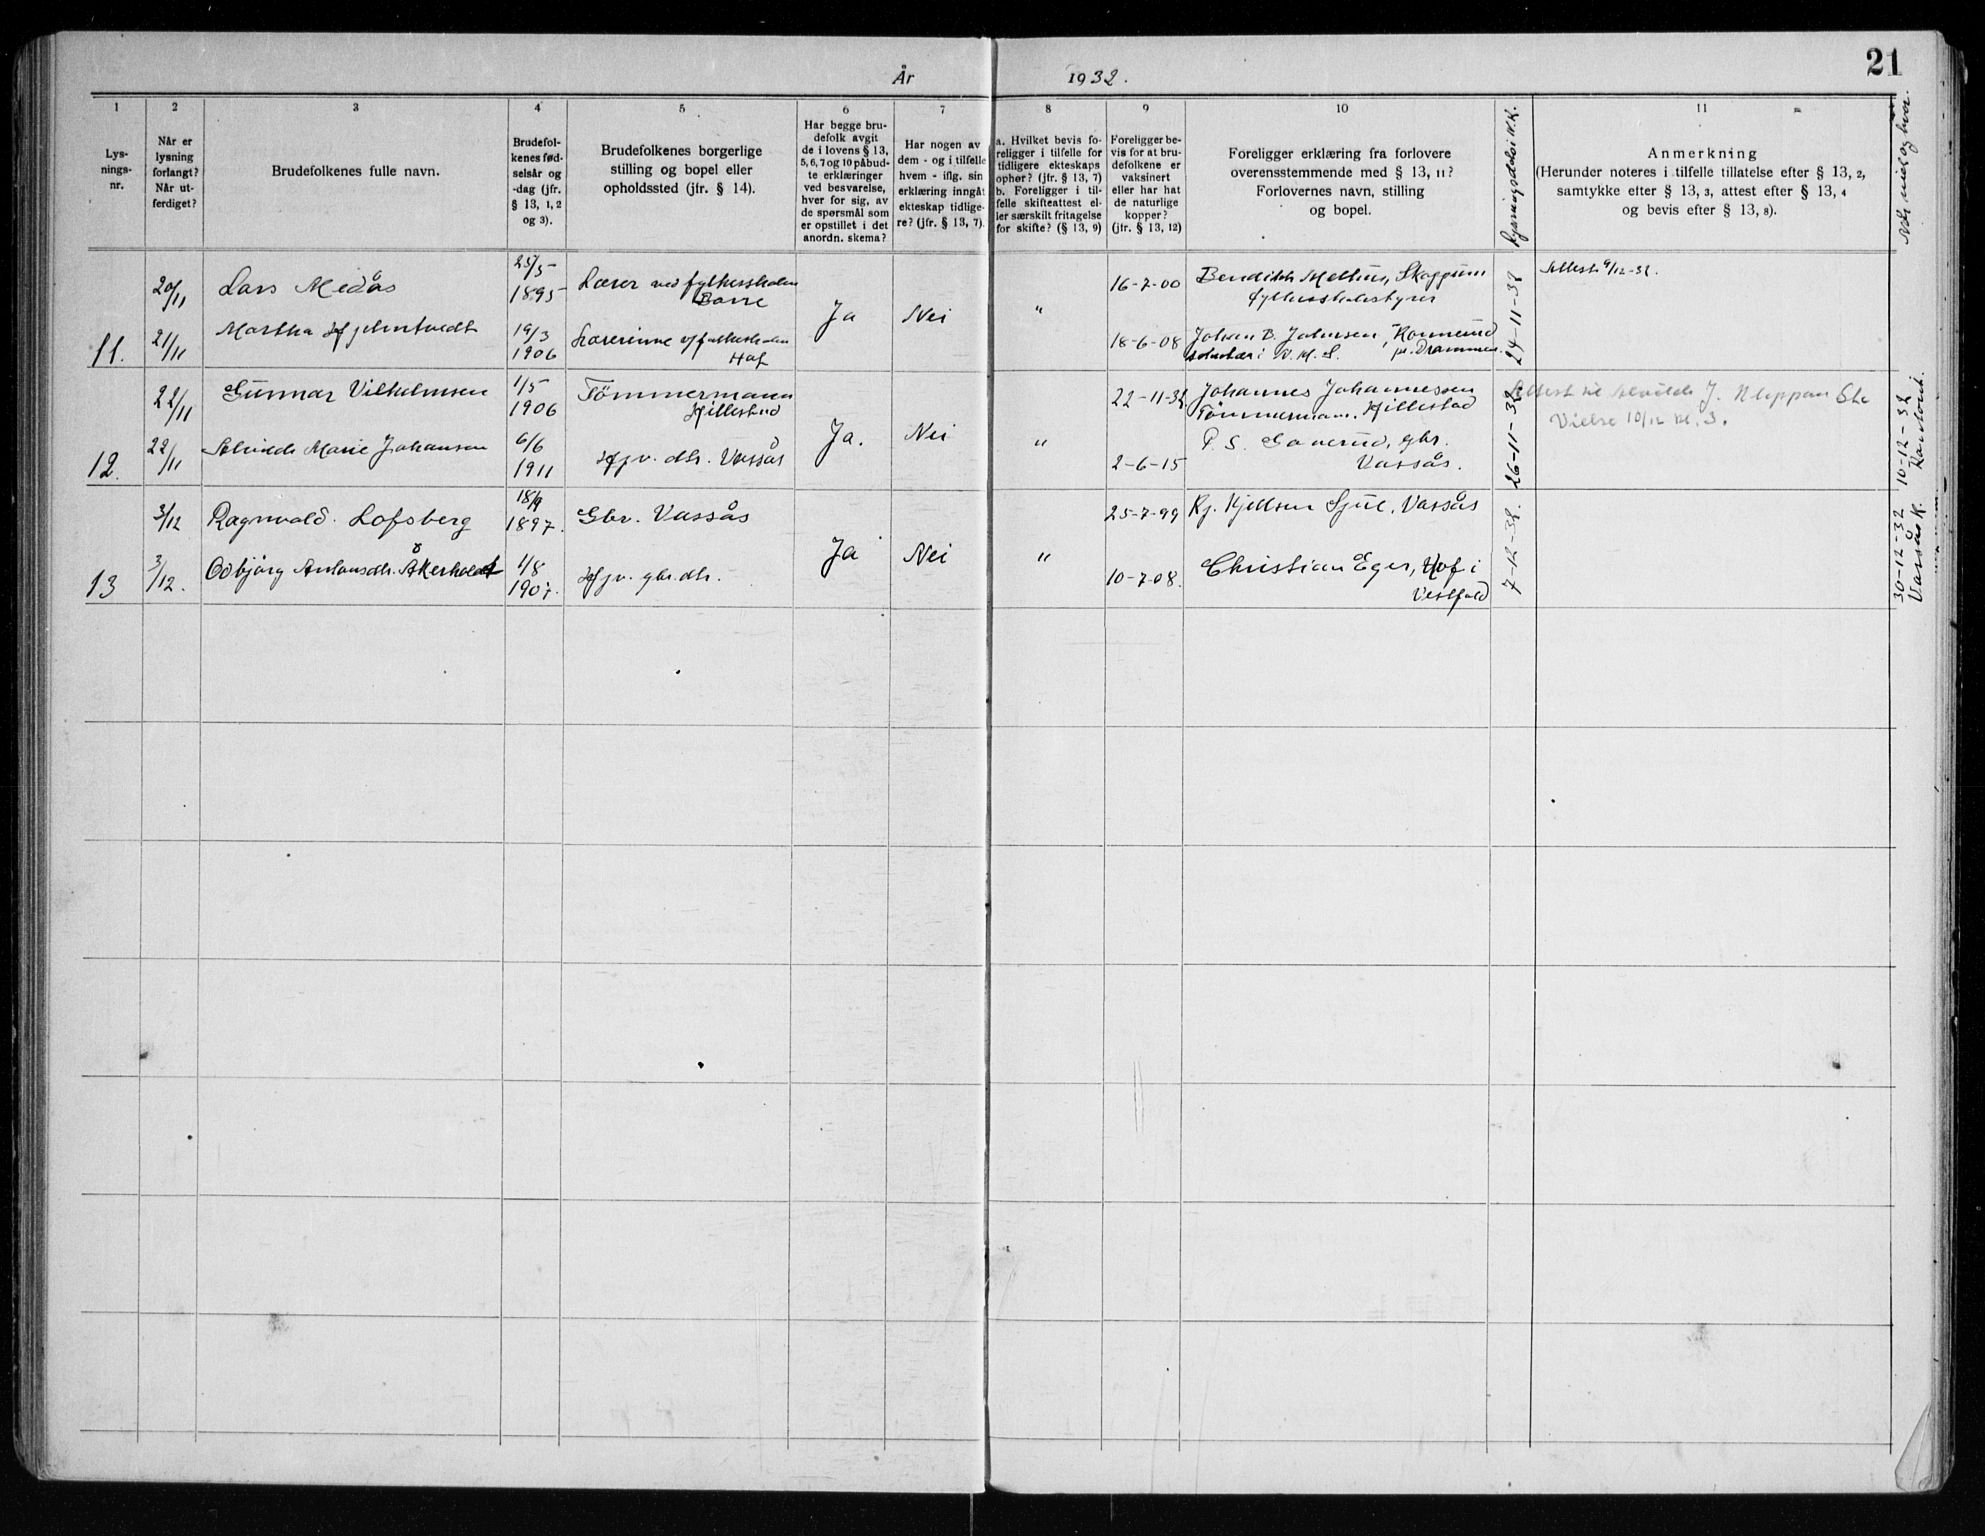 21
År 1932.
1 2 3 4 5 6 7 8 9 10 11
Lys-
nings-
nr.
Når er
lysning
forlangt?
Når ut-
ferdiget?
Brudefolkenes fulle navn.
Brudefol-
kenes fød-
selsår og
-dag (jfr.
§ 13, 1, 2
og 3).
Brudefolkenes borgerlige
stilling og bopel eller
opholdssted (jfr. § 14).
Har begge bru-
defolk avgit
de i lovens § 13,
5, 6, 7 og 10 påbud-
te erklæringer
ved besvarelse,
hver for sig, av
de spørsmål som
er opstillet i det
anordn. skema?
Har nogen av
dem - og i tilfelle
hvem - iflg. sin
erklæring inngåt
ekteskap tidlige-
re? (jfr. § 13, 7).
a. Hvilket bevis fo-
religger i tilfelle for
tidligere ekteskaps
ophør? (jfr. § 13, 7)
b. Foreligger i til-
felle skifteattest el-
ler særskilt fritagelse
for skifte? (§ 13, 9)
Foreligger be-
vis for at bru-
defolkene er
vaksinert
eller har hat
de naturlige
kopper?
(jfr. § 13, 12)
Foreligger erklæring fra forlovere
overensstemmende med § 13, 11?
Forlovernes navn, stilling
og bopel.
Anmerkning
(Herunder noteres i tilfelle tillatelse efter § 13, 2,
samtykke efter § 13, 3, attest efter § 13, 4
og bevis efter § 13, 8).
Når viet og hvor.
11.
20/11
21/11
Lars Medås
Martha Hjelmtvedt
25/5
1895
19/3
1906
Lærer ved fylkesskolen
Borre
Lærerinne v/folkeskolen
Hof
Ja
Nei
"
16-7-00
18-6-08
Bendikt Melhus, Skoppum
fylkesskolestyrer
Johan B. Johnsen, Konnerud
pr. Drammen.
24-11-32
Attest 9/12-32.
12.
22/11
22/11
Gunnar Vilhelmsen
Alvilde Marie Johansen
1/5
1906
6/6
1911
Tömmermann
Hillestad
Hjv. dtr. Vassås
Ja.
Nei
"
22-11-32.
2-6-15
Johannes Johannessen
Tömmermann. Hillestad
P. S. Gaverud, gbr.
Vassås.
26-11-32.
Vielse 10/12 kl. 3.
10-12-32
13
3/12
3/12.
Ragnvald Lofsberg
Odbjörg Antonsdtr. Åkerholdt
18/9
1897.
1/8
1907.
Gbr. Vassås
Hjv. gbr.dtr.
Ja
Nei
"
25-7-99
10-7-08.
Kj. Kjellsen Sjue, Vassås
Christian Eger, Hof i
Vestfold
7-12-32.
30-12-32
Vassås K.